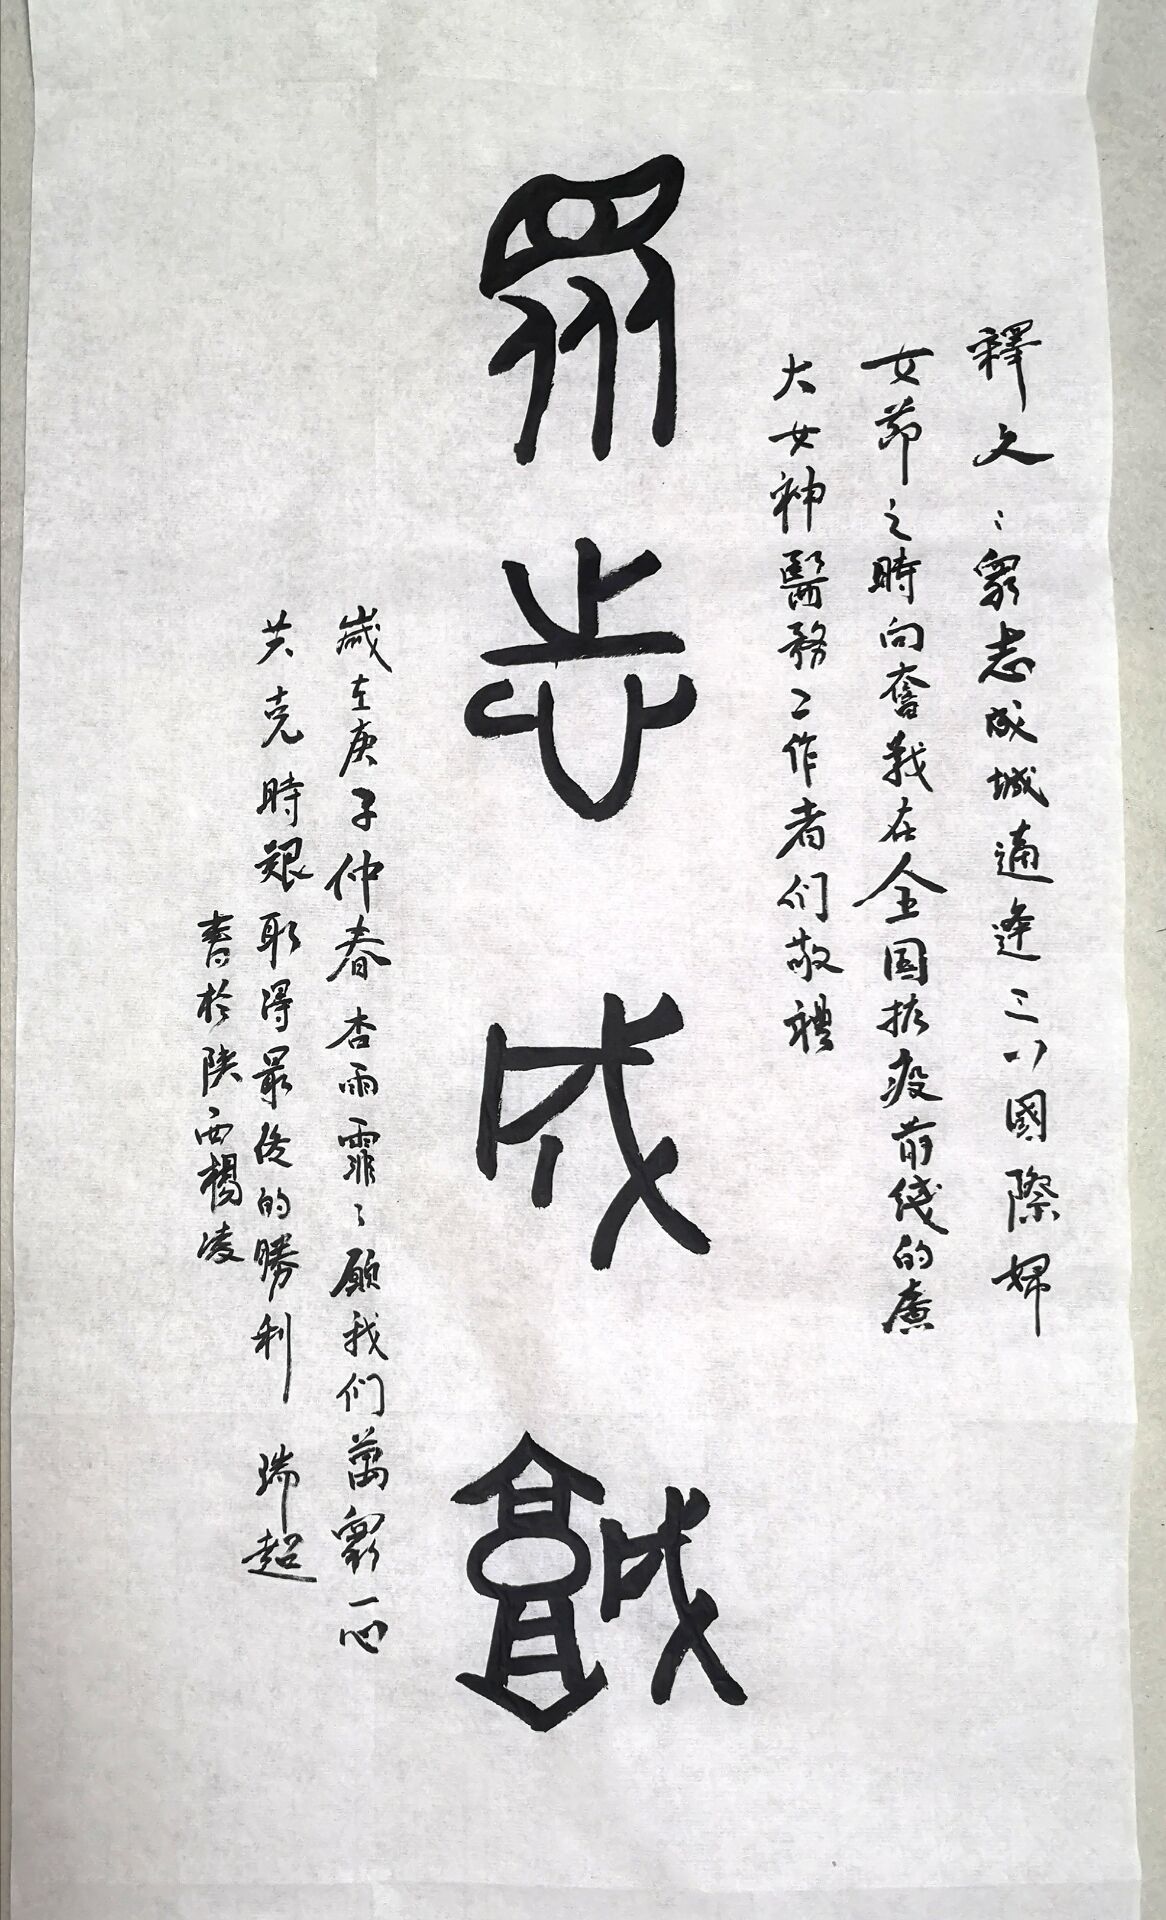 釋文：衆志成城適逢三八國際婦
女節之時向奮戰在全国抗疫前线的廣
大女神醫務工作者们敬禮
衆志成城
歲在庚子仲春杏雨霏霏願我们萬衆一心
共克時艱取得最後的勝利 瑞超
書於陕西楊凌